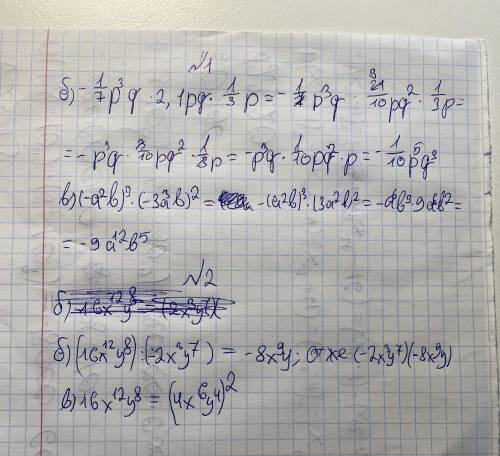 №1
б) -1/7 p³q · 2,1pq · 1/3 p = -1/7 p³q · 21/10 pq² · 1/3 p =
= -p³q · 3/10 pq² · 1/3 p = -p³q · 1/10 pq² · p = -1/10 p⁵q³
в) (-a²b)³ · (-3a³b)² = -(a²b)³ · (3a²b)² = -a⁶b³ · 9a⁶b² =
= -9a¹²b⁵
№2
б) 16x¹²y⁸ = (2x³y⁷)(
б) (16x¹²y⁸) : (-2x³y⁷) = -8x⁹y; отже (-2x³y⁷)(-8x⁹y)
в) 16x¹²y⁸ = (4x⁶y⁴)²